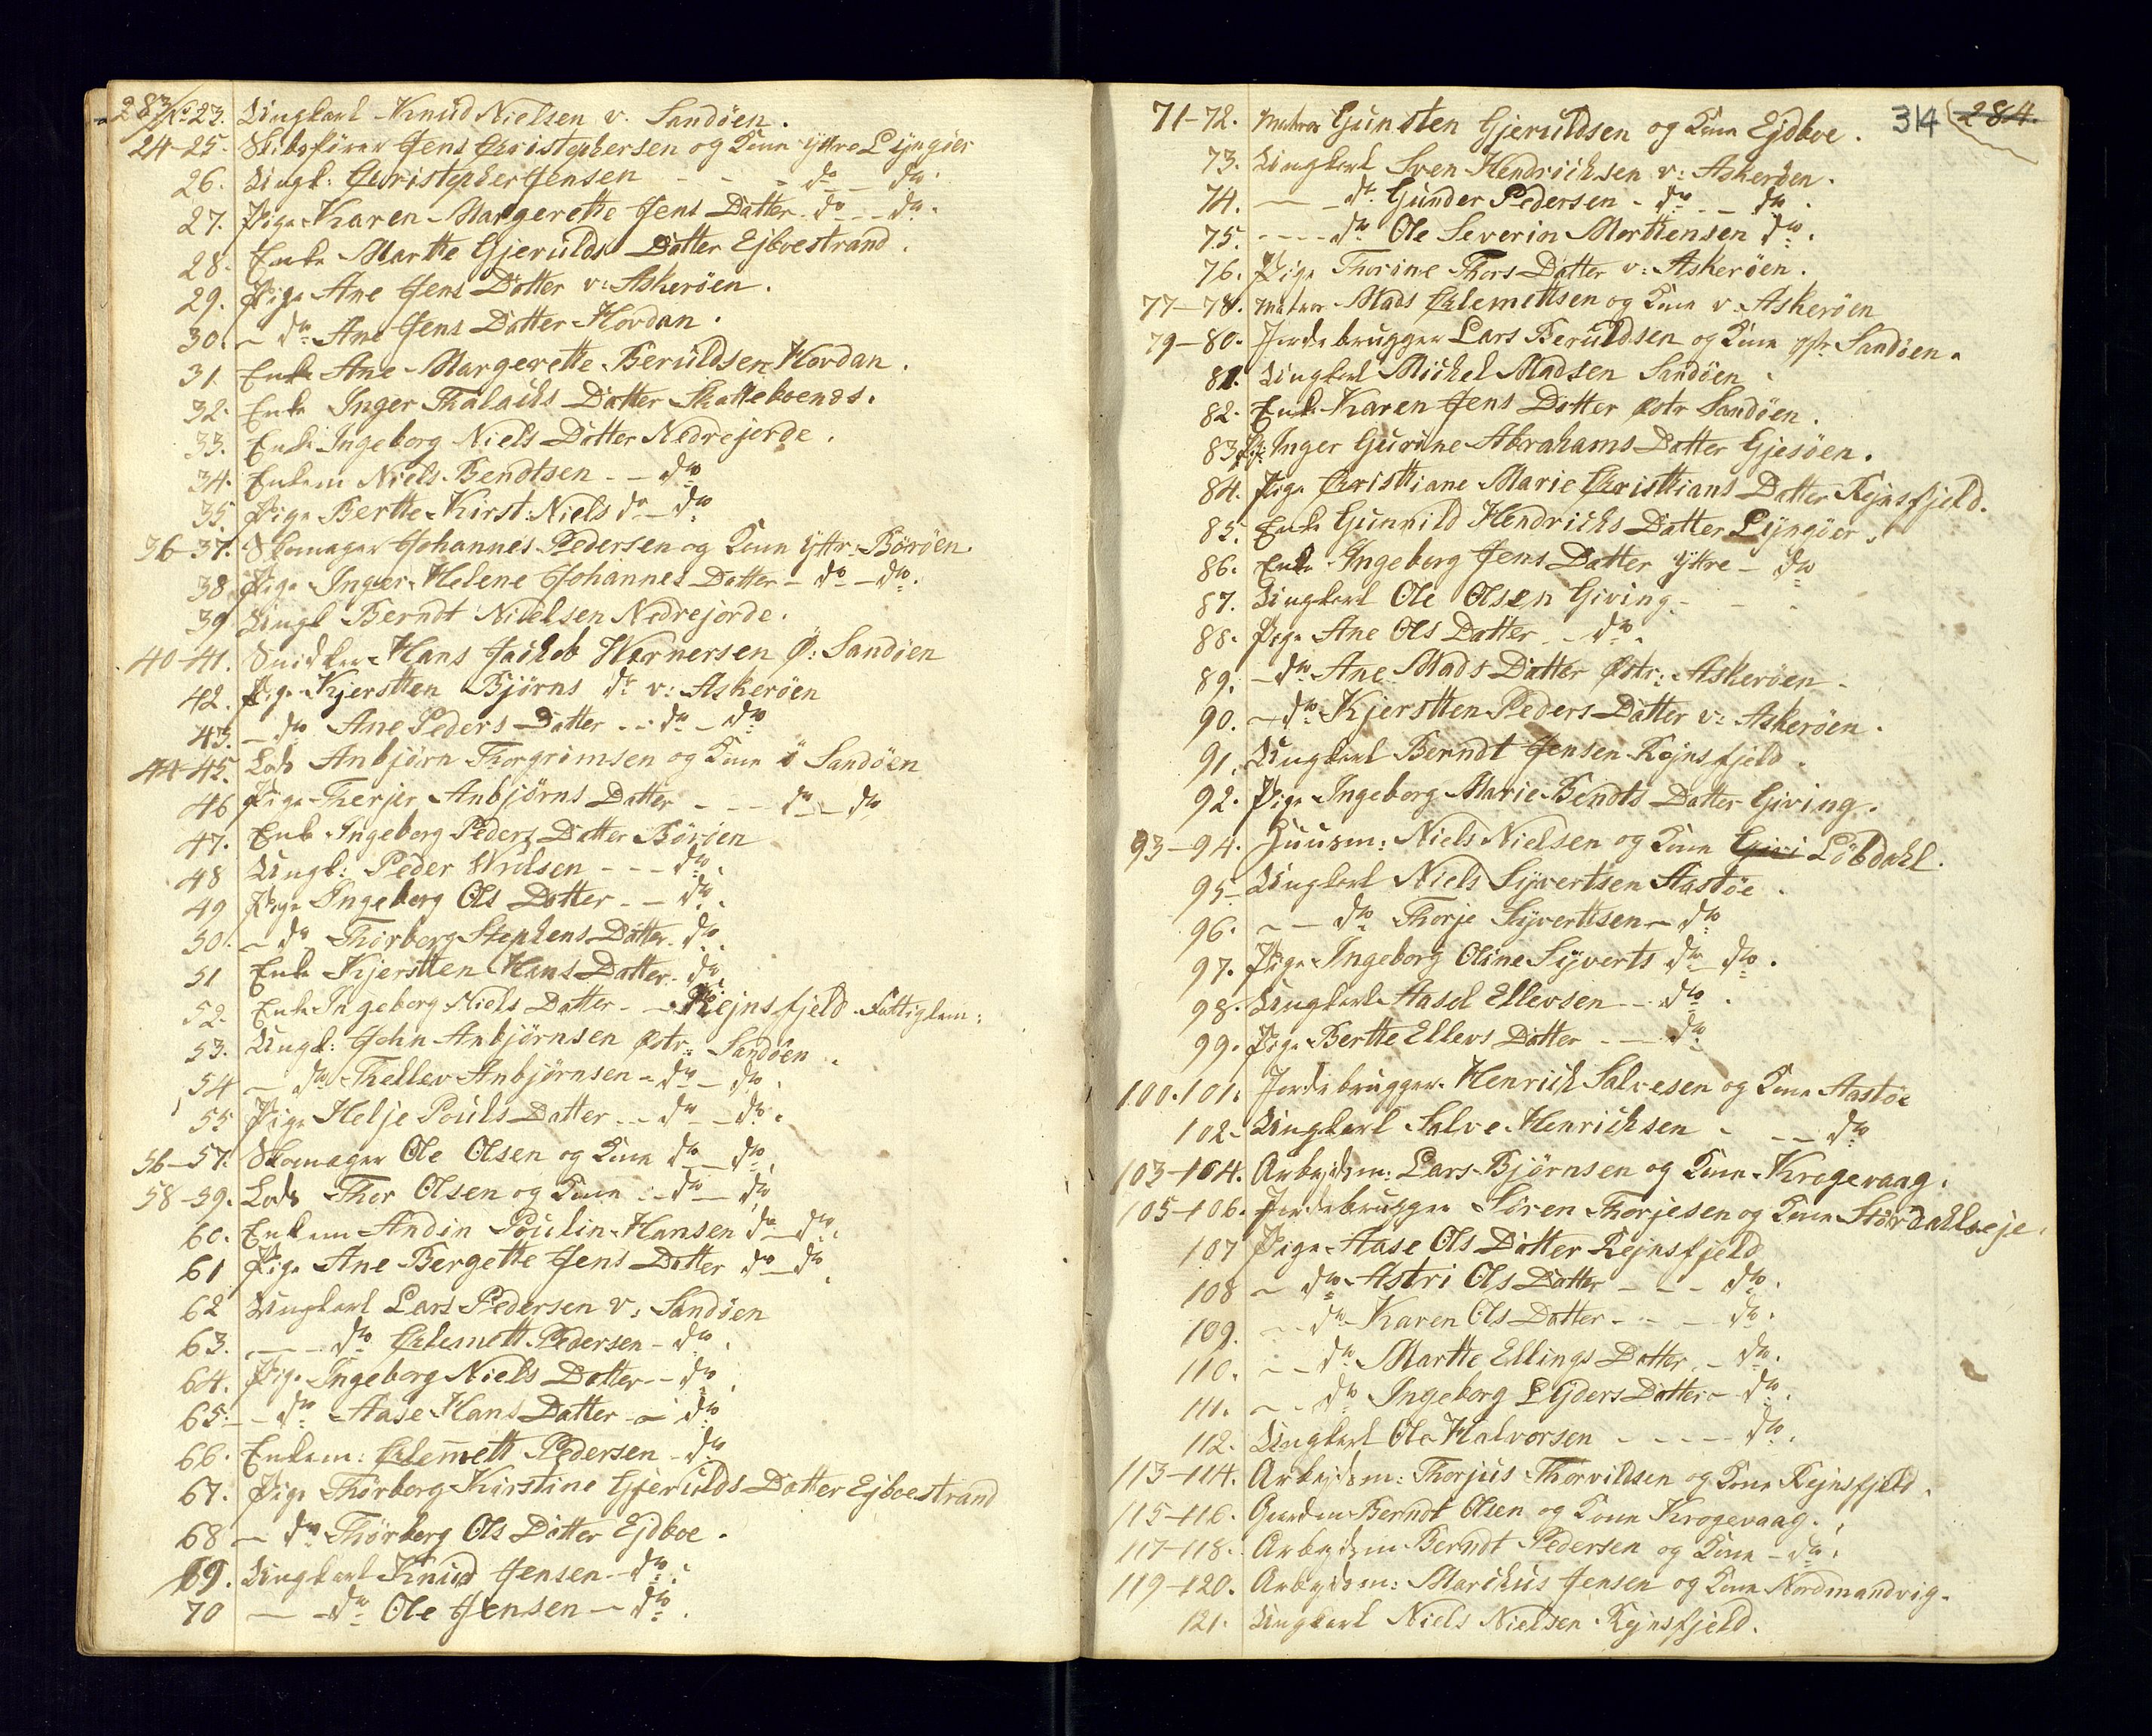 283/ No 23. Ungkarl Knud Nielsen v. Sandöen.
24-25. Skibsförer Jens Christophersen og Kone Yttre Lÿngöer
26. Ungk: Christopher Jensen - - - do - - do.
27. Pige Karen Margerethe Jens Datter - do - - do.
28. Enke Marthe Gjerulds Datter Ejboestrand.
29. Pige Ane Jens Datter v: Askeröen.
30. - do Ane Jens Datter Hovdan.
31. Enke Ane Margerethe Beruldsen Hovdan.
32. Enke Inger Thalachs Datter Skatteboends.
33. Enke Ingeborg Niels Datter Nedrejorde.
34. Enkem Niels Bendtsen - - do
35. Pige Berthe Kirst: Niels do - do
36-37. Skomager Johannes Pedersen og Kone Yttr: Böröen.
38 Pige Inger Helene Johannes Datter - do - do.
39 Ungk Berndt Nielsen Nedrejorde.
40-41. Snidker Hans Jachob Wernersen Ö: Sandöen
42. Pige Kjerstten Björns do v: Askeröen
43. - do Ane Peders Datter - - do - do
44-45. Lods Anbjörn Thorgrimsen og Kone ö Sandöen
46 Pige Therjer Anbjörns Datter - - - do - do
47. Enke Ingeborg Peders Datter Böröen
48 Ungk: Peder Wrolsen - - - do.
49 Pige Ingeborg Ols Datter - - do.
50. - do Thorborg Stephens Datter - do.
51 Enke Kjerstten Hans Datter - do.
52. Enke Ingeborg Niels Datter - - Rejnsfjeld Fattiglem:
53. Ungk: John Anbjörnsen östr: Sandöen.
54 - do Thellev Anbjörnsen - do - do.
55 Pige Helje Pouls Datter - - do - - do.
56-57. Skomager Ole Olsen og Kone do - do.
58-59. Lods Thor Olsen og Kone - - do - do
60. Enkem Andin Poulin Hansen do - do.
61 Pige Ane Bergette Jens Datter do - do
62 Ungkarl Lars Pedersen v: Sandöen
63. - - do Chlemett Pedersen - do.
64. Pige Ingeborg Niels Datter - - do.
65. - do Aase Hans Datter - do.
66. Enkem: Clemmett Pedersen - do
67. Pige Thorborg Kirstine Gjerulds Datter Ejboestrand
68 - do Thorborg Ols Datter Ejdboe.
69. Ungkarl Knud Jensen - do.
70 - - do Ole Jensen - do.
314 284.
71-72. Matros Gunsten Gjeruldsen og Kone Ejdboe.
73. Ungkarl Sven Hendrichsen v: Askeröen.
74. - - do Gunder Pedersen - do - - do.
75. - - - do Ole Severin Morthensen do.
76. Pige Thorine Thors Datter v: Askeröen.
77-78. Matros Mads Chlemettsen og Kone v Askeröen
79-80. Jordebrugger Lars Beruldsen og Kone Sandöen.
81. Ungkarl Michel Madsen Sandöen
82. Enke Karen Jens Datter östr Sandöen.
83 Pig: Inger Gurine Abrahams Datter Gjesöen.
84. Pige Christtiane Marie Christtians Datter Rejnsfjeld.
85. Enke Gunnild Hendrichs Datter Lÿngöer.
86. Enke Ingeborg Jens Datter Yttre - do
87. Ungkarl Ole Olsen Giving -
88. Pige Ane Ols Datter - do.
89. - do Ane Mads Datter östr: Askeröen -
90. - do Kjerstten Peders Datter v: Askeröen.
91. Ungkarl Berndt Jensen Rejnsfjeld.
92. Pige Ingeborg Marie Bendts Datter Giving.
93-94. Huusm: Niels Nielsen og Kone Givi Löbdahl.
95 - Ungkarl Niels Sÿvertsen Aastöe.
96. - - do Thorje Sÿvertsen - do
97. Pige Ingeborg Oline Sÿverts do - do.
98. Ungkarl Aasel Ellevsen - - do.
99. Pige Berthe Ellevs Datter - - do
100.101. Jordebrugger Henrich Salvesen og Kone Aastöe
102. Ungkarl Salve Henrichsen - - - do
103-104. Arbejdsm: Lars Björnsen og Kone Krogevaag.
105-106. Jordebrugger Sören Thorjesen og Kone Stördahlseje.
107 Pige Aase Ols Datter Rejnsfjeld
108 - do Astri Ols Datter - - - do.
109. - - do Karen Ols Datter - - - do.
110. - - do Marthe Ellings Datter - do.
111. - - do Ingeborg Lÿders Datter - do.
112. Ungkarl Ole Halvorsen - - - - do.
113-114. Arbejdsm: Thorjus Thorvildsen og Kone Rejnsfjeld.
115-116. Gaardm Berndt Olsen og Kone Krogevaag.
117-118. Arbejdsm Berndt Pedersen og Kone - do.
119-120. Arbejdsm: Marchus Jensen og Kone Nordmandvig.
121. Ungkarl Niels Nielsen Rejnsfjeld.